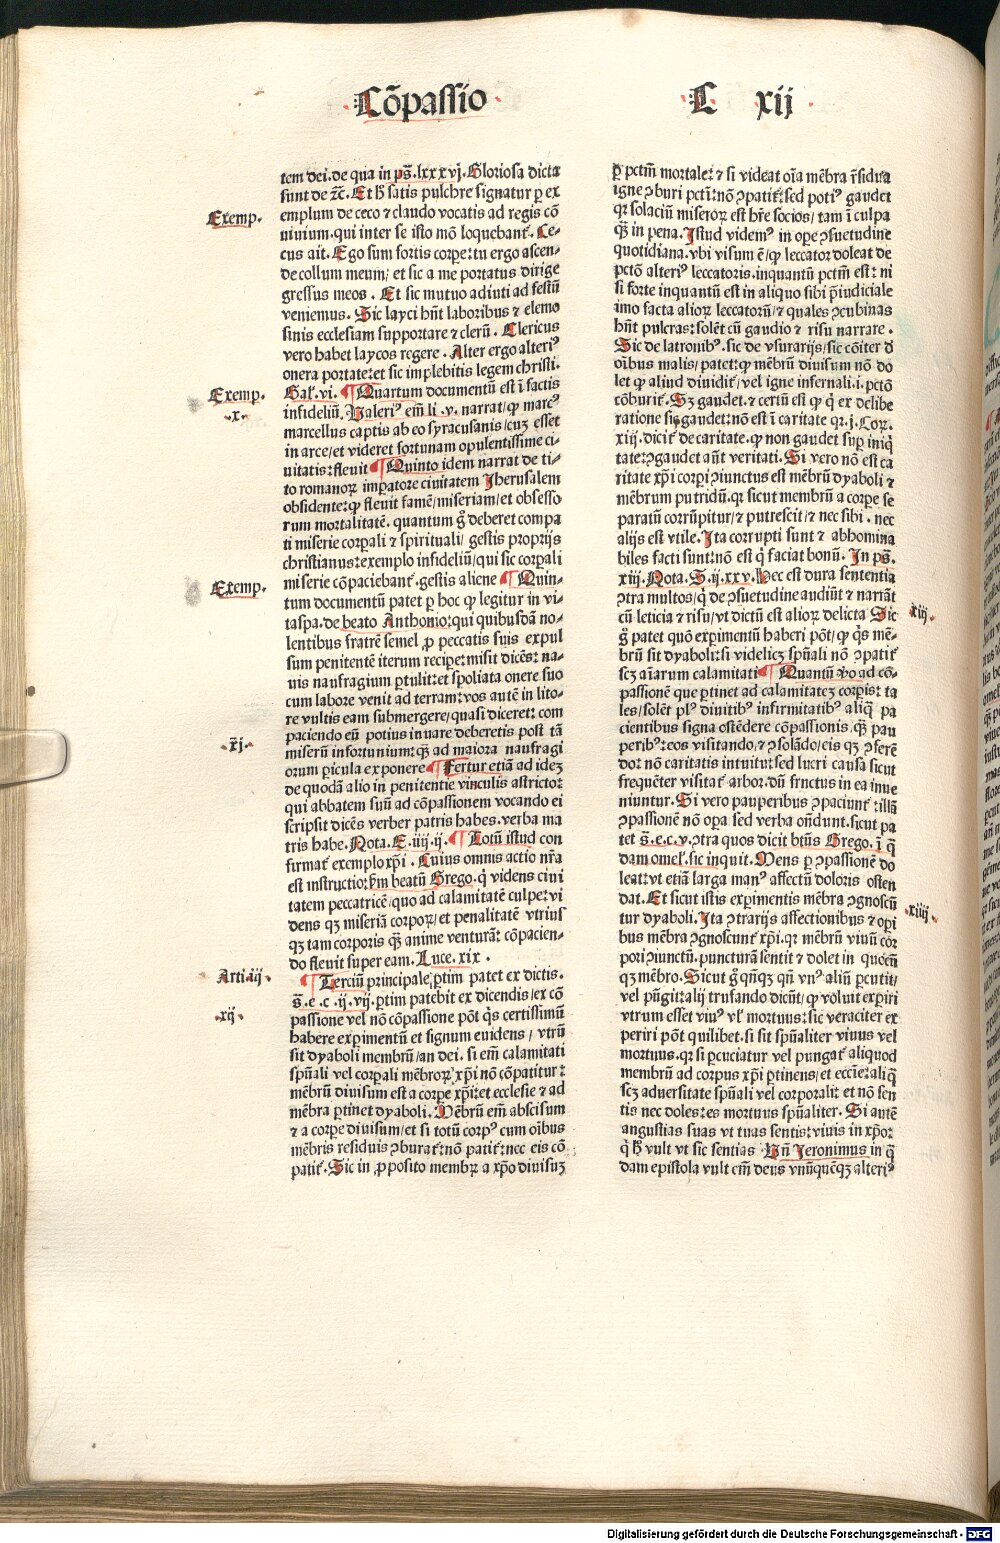 Cõpassio
C xij
tem dei. de qua in ps̃. lxxxvj. Gloriosa dicta
sunt de ⁊c̃. Et h̃ satis pulchre signatur ꝑ ex
Exemp.
emplum de ceco ⁊ claudo vocatis ad regis cō
uiuium. qui inter se isto mō loquebant᷑. Ce-
cus ait. Ego sum fortis corpe: tu ergo ascen-
de collum meum/ et sic a me portatus dirige
gressus meos. Et sic mutuo adiuti ad festũ
veniemus. Sic layci hñt laboribus ⁊ elemo
sinis ecclesiam supportare ⁊ clerũ. Clericus
vero habet laycos regere. Alter ergo alteriꝰ
onera portate: et sic implebitis legem christi.
Exemp.
.x.
Gal᷑. vi. ¶ Quartum documentũ est ĩ factis
infideliũ. Valeriꝰ em̃ li. v. narrat/ ꝙ marcꝰ
marcellus captis ab eo syracusanis/ cuꝫ esset
in arce/ et videret fortunam opulentissime ci-
uitatis: fleuit ¶ Quinto idem narrat de ti-
to romanoꝝ imꝑatore ciuitatem Jherusalem
obsidente: ꝙ fleuit famē/ miseriam/ et obsesso
rum mortalitatē. quantum g̊ deberet compa
ti miserie corꝑali ⁊ spirituali/ gestis proprijs
christianus: exemplo infideliũ/ qui sic corꝑali
Exemp.
miserie cōpaciebant᷑. gestis aliene ¶ Quin-
tum documentũ patet ꝑ hoc ꝙ legitur in vi-
taspa. de beato Anthonio: qui quibusdā no-
lentibus fratrē semel ꝓ peccatis suis expul
sum penitentē iterum recipe: misit dicēs: na-
uis naufragium ꝑtulit: et spoliata onere suo
cum labore venit ad terram: vos autē in lito-
re vultis eam submergere/ quasi diceret: com
paciendo eũ potius iuuare deberetis post tã
xj.
miserũ infortunium: ꝗ̃ ad maiora naufragi
orum ꝑicula exponere ¶ Fertur etiã ad ideꝫ
de quodã alio in penitentie vinculis astricto:
qui abbatem suũ ad cōpassionem vocando ei
scripsit dicēs verber patris habes. verba ma
tris habe. Nota. E. iiij. ij. ¶ Totũ istud con
firmat᷑ exemplo xp̃i. Cuius omnis actio nr̃a
est instructio: ẜm beatũ Grego. q̇ videns ciui
tatem peccatricē/ quo ad calamitatē culpe: vi
dens qꝫ miseriã corpoꝝ/ et penalitatē vtrius
qꝫ tam corporis ꝗ̃ anime venturã: cōpacien-
do fleuit super eam. Luce. xix.
Arti. iij
¶ Terciũ principale/ ꝑtim patet ex dictis.
s̃. e. c. ij. vij. ꝑtim patebit ex dicendis/ ex cō
xij.
passione vel nō cōpassione pōt q̇s certissimũ
habere exꝑimentũ et signum euidens/ vtrũ
sit dyaboli membrũ/ an dei. si em̃ calamitati
spũali vel corꝑali mēbroꝝ xp̃i nō cōpatitur:
mēbrũ diuisum est a corꝑe xp̃i: et ecclesie ⁊ ad
mēbra ꝑtinet dyaboli. Mēbrũ em̃ abscisum
⁊ a corꝑe diuisum/ et si totũ corpꝰ cum oĩbus
mēbris residuis ↄburat᷑: nō patit᷑: nec eis cō
patit᷑. Sic in ꝓposito membꝝ a xp̃o diuisuꝫ
ꝑ pctm̃ mortale: ⁊ si videat oĩa mēbra r̃sidua
igne ↄburi pcti: nō ↄpatit᷑: sed potiꝰ gaudet
qꝛ solaciũ miseroꝝ est hr̃e socios/ tam ĩ culpa
ꝗ̃ in pena. Istud videmꝰ in oꝑe ↄsuetudine
quotidiana. vbi visum ē/ ꝙ leccator doleat de
pctõ alteriꝰ leccatoris. inquantũ pctm̃ est: ni
si forte inquantũ est in aliquo sibi p̃iudiciale
imo facta alioꝝ leccatorũ/ ⁊ quales ↄcubinas
hñt pulcras: solēt cũ gaudio ⁊ risu narrare.
Sic de latronibꝰ. sic de vsurarijs/ sic cōiter d̓
oĩbus malis/ patet: ꝙ mēbrũ diuisum nō do
let ꝙ aliud diuidit᷑/ vel igne infernali. i. pctõ
cōburit᷑. Sꝫ gaudet. ⁊ certũ est ꝙ q̇ ex delibe
ratione sic gaudet: nō est ĩ caritate qꝛ. j. Coꝝ.
xiij. dicit᷑ de caritate. ꝙ non gaudet suꝑ iniq̇
tate: ↄgaudet aũt veritati. Si vero nō est ca
ritate xp̃i corpi ↄiunctus est mēbrũ dyaboli ⁊
mēbrum putridũ. qꝛ sicut membrũ a corꝑe se
paratũ corrũpitur/ ⁊ putrescit/ ⁊ nec sibi. nec
alijs est vtile. Ita corrupti sunt ⁊ abhomina
biles facti sunt: nō est q̇ faciat bonũ. In ps̃.
xiij. Nota. S. ij. xxv. Hec est dura sententia
xiij.
ↄtra multos/ q̇ de ↄsuetudine audiũt ⁊ narrãt
cũ leticia ⁊ risu/ vt dictũ est alioꝝ delicta Sic
g̊ patet quō exꝑimentũ haberi pōt/ ꝙ q̇s mē-
brũ sit dyaboli: si videlicꝫ spũali nō ↄpatit᷑
scꝫ aĩarum calamitati ¶ Quantũ ꝟo ad cō-
passionē que ꝑtinet ad calamitateꝫ corꝑis: ta
les/ solēt plꝰ diuitibꝰ infirmitatibꝰ aliq̇ pa
cientibus signa ostēdere cōpassionis ꝗ̃ pau
peribꝰ: eos visitando/ ⁊ ↄsolãdo/ eis qꝫ ↄferē
do: nō caritatis intuitu: sed lucri causa sicut
frequēter visitat᷑ arbor. dũ fructus in ea inue
niuntur. Si vero pauperibus ↄpaciunt᷑: illã
ↄpassionē nō oꝑa sed verba oñdunt. sicut pa
tet s̃. e. c. v. ↄtra quos dicit btũs Grego. ĩ q̃
dam omel᷑. sic inquit. Mens ꝑ ↄpassionē do
leat: vt etiã larga manꝰ affectũ doloris osten
dat. Et sicut istis exꝑimentis mēbra ↄgnoscũ
xiiij.
tur dyaboli. Ita ↄtrarijs affectionibus ⁊ oꝑi
bus mēbra ↄgnoscunt᷑ xp̃i. qꝛ mēbrũ viuũ cor
pori ↄiunctũ. puncturã sentit ⁊ dolet in quocũ
qꝫ mēbro. Sicut g̊ qñqꝫ qñ vnꝰ aliũ ꝑcutit/
vel pũgit: alij trusando dicũt/ ꝙ voluit exꝑiri
vtrum esset viuꝰ vl᷑ mortuus: sic veraciter ex
periri pōt quilibet. si sit spũaliter viuus vel
mortuus. qꝛ si ꝑcuciatur vel pungat᷑ aliquod
membrũ ad corpus xp̃i ꝑtinens/ et eccl̃ie: aliq̃
scꝫ aduersitate spũali vel corporali: et nō sen
tis nec doles: es mortuus spũaliter. Si autē
angustias suas vt tuas sentis: viuis in xp̃o:
q̇ h̃ vult vt sic sentias. Vñ Jeronimus in q̃
dam epistola vult em̃ deus vnũquēqꝫ alteriꝰ
Digitalisierung gefördert durch die Deutsche Forschungsgemeinschaft - DFG